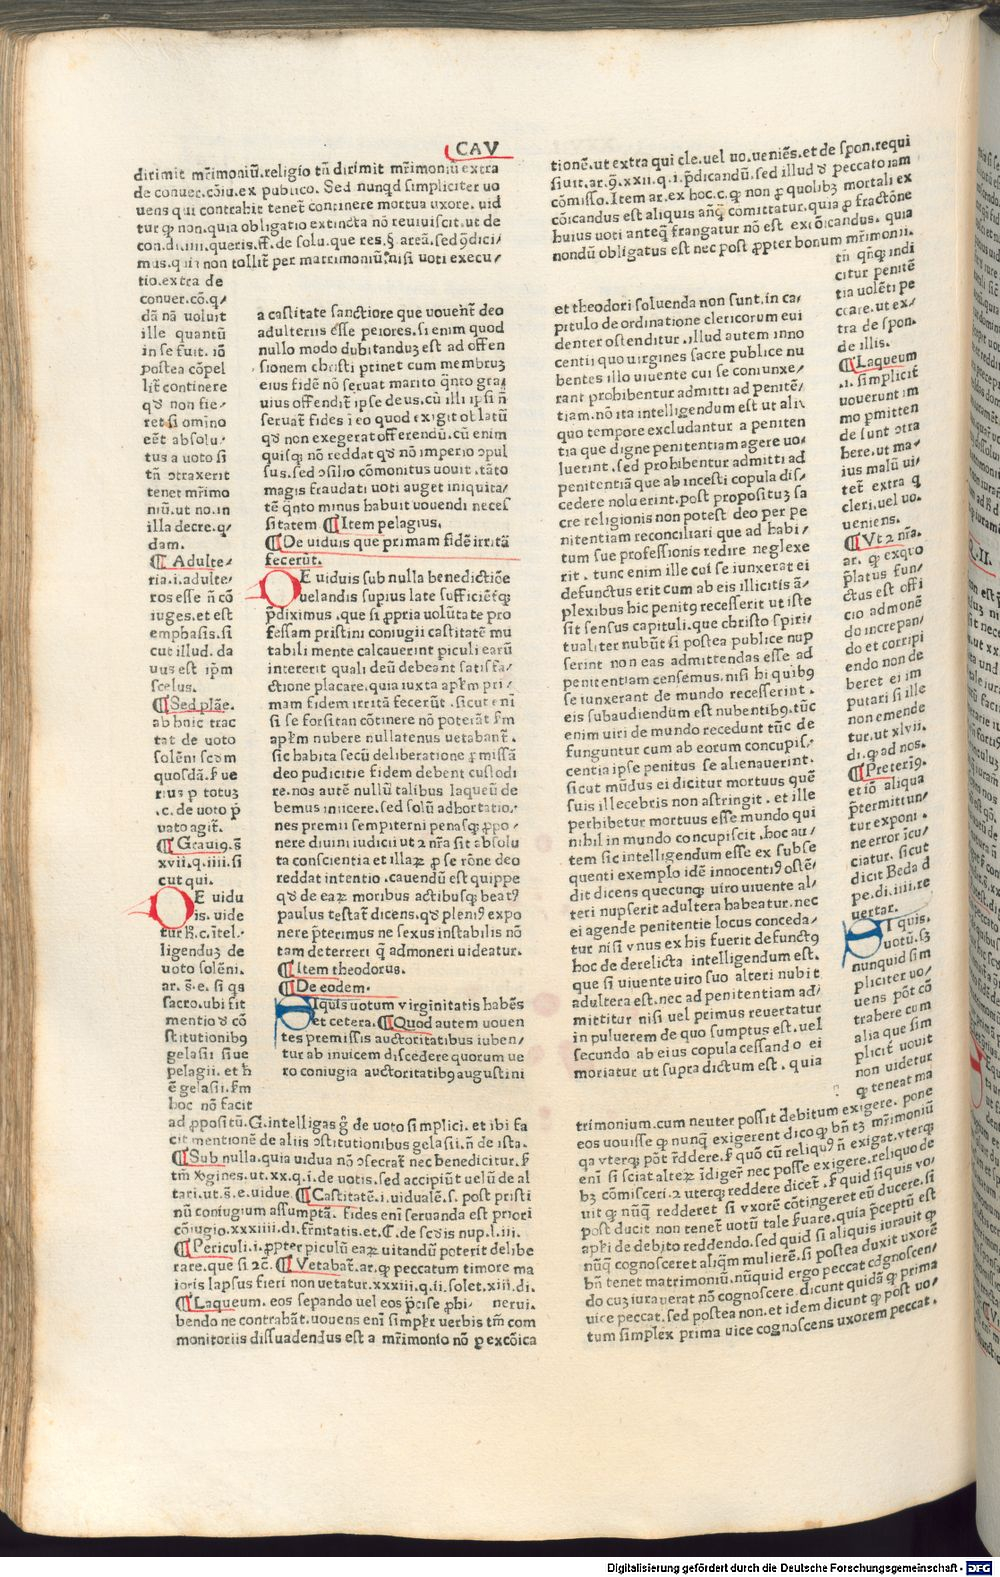 CAV
dirimit mr̄imoniū.religio tn̄ dirimit mr̄imoniū extra
de conuer.cōiu.ex publico. Sed nunqd simpliciter uo
uens qui contrahit tenet̄ continere mortua uxore. uid
tur ꝙ non.quia obligatio extincta nō reuiuiscit.ut de
con.di.iiii.queris.ff.de solu.que res.§ areā.sed ꝯdici/
mus.quia non tollit̄ per matrimoniū.nisi uoti execu/
tio.extra de
conuer.cō.q/
dā nā uoluit
ille quantū
in se fuit. iō
postea cōpel
lit̄ continere
qd̄ non fie/
ret si omīno
eēt absolu/
tus a uoto si
tn̄ ꝯtraxerit
tenet mr̄imo
niū.ut no.in
illa decre.q/
dam.
¶ Adulte/
ria.i.adulte/
ros esse n̄ cō
iuges.et est
emphasis.si
cut illud. da
uus est ip̄m
scelus.
¶ Sed plāe.
ab hoic trac
tat de uoto
solēni scdm
quosdā.ſ ue
rius p totuꝫ
.c. de uoto p̄
uato agit̄.
¶ Grauiꝰ.s̄
xvii.q.iiii.si
cut qui.
DE uidu
is. uide
tur ħ.c.ītel/
ligenduꝫ de
uoto solēni.
ar. s̄.e. si qs
sacro.ubi fit
mentio d̄ cō
stitutionibꝰ
gelasii siue
pelagii. et ħ
ē gelasii.ſm
hoc nō facit
ad ꝓpositū.G.intelligas gͦ de uoto simplici. et ibi fa
cit mentionē de aliis ꝯstitutionibus gelasii.n̄ de ista.
¶ Sub nulla.quia uidua nō ꝯsecrat̄ nec benedicitur.ſ
tm̄ x̄gines.ut.xx.q.i.de uotis.sed accipiūt uelū de al
tari.ut.s̄.e.uidue. ¶ Castitatē.i.uidualē.s. post pristi
nū coniugium assumptā. fides enī seruanda est priori
cōiugio.xxxiiii.di.fr̄nitatis.et.C.de scd̄is nup.l.iii.
¶ Periculi.i.ꝓpter piculū eaꝝ uitandū poterit delibe
rare.que si 2c̄. ¶ Vetabat̄.ar.ꝙ peccatum timore ma
ioris lapsus fieri non uetatur.xxxiii.q.ii.solet.xiii.di.
¶ Laqueum. eos sepando uel eos p̄cise ꝓhi/ nerui.
bendo ne contrahāt.uouens enī simpłr uerbis tm̄ com
monitoriis dissuadendus est a mr̄imonio nō p excōica
a castitate sanctiore que uouenēt deo
adulteriis esse peiores.si enim quod
nullo modo dubitanduꝫ est ad offen
sionem christi ptinet cum membruꝫ
eius fidē nō seruat marito q̄nto gra/
uius offendit̄ ipse deus.cū illi ipsi n̄
seruat̄ fides ī eo quod exigit oblatū
qd̄ non exegerat offerendū.cū enim
quisqꝫ nō reddat qd̄ nō imperio ꝯpul
sus.sed ꝯsilio cōmonitus uouit.tāto
magis fraudati uoti auget iniquita/
tē q̄nto minus habuit uouendi neces
sitatem ¶ Item pelagius.
¶ De uiduis que primam fidē irritā
fecerūt.
DE uiduis sub nulla benedictiōe
uelandis supius late sufficiēt̄qꝫ
p̄diximus .que si ꝓpria uolūtate pro
fessam pristini coniugii castitatē mu
tabili mente calcauerint piculi earū
intererit quali deū debeant satisfa/
ctione placare.quia iuxta apłm pri/
mam fidem irritā fecerūt .sicut enī
si se forsitan cōtinere nō poterāt ſm
apłm nubere nullatenus uetabant̄.
sic habita secū deliberatione ꝓmissā
deo pudicitie fidem debent custodi
re.nos autē nullū talibus laqueū de
bemus iniicere.sed solū adhortatio/
nes premii sempiterni penasqꝫ ꝓpo/
nere diuini iudicii ut 2 nr̄a sit absolu
ta conscientia et illaꝝ ꝓ se rōne deo
reddat intentio .cauendū est quippe
qd̄ de eaꝝ moribus actibusqꝫ beatꝰ
paulus testat̄ dicens.qd̄ pleniꝰ expo
nere p̄terimus ne sexus instabilis nō
tam deterreri q̄ admoneri uideatur.
¶ Item theodorus.
¶ De eodem.
SIquis uotum virginitatis habēs
et cetera.¶ Quod autem uouen
tes premissis auctoritatibus iuben/
tur ab inuicem discedere quorum ue
ro coniugia auctoritatibꝰ augustini
tionē.ut extra qui cle.uel uo.ueniēs.et de spon.requi
siuit.ar.9.xxii.q.i.p̄dicandū.sed illud d̄ peccato iam
cōmisso.Item ar.ex hoc.c.ꝙ non ꝓ quolibꝫ mortali ex
cōicandus est aliquis an̄q̄ comittatur.quia ꝓ fractōne
huius uoti anteq̄ frangatur nō est excōicandus. quia
nondū obligatus est nec post ꝓpter bonum mr̄imonii.
tn̄ qn̄qꝫ indi
citur penitē
tia uolēti pe
ccare.ut ex/
tra de spon.
de illis.
¶ Laqueum
.i. simplicit̄
uouerunt im
mo pmitten
de sunt ꝯtra
bere.ut ma/
ius malū ui/
tet̄ extra q
cleri.uel uo.
ueniens.
¶ Vt 2 nr̄a.
ar. ꝙ exquo
p̄latus fun/
ctus est offi
cio admonē
do increpan/
do et corripi
endo non de
beret ei im
putari si ille
non emende
tur.ut xlvii.
di.q.ad nos.
¶ Preteriꝰ.
et iō aliqua
p̄termittun/
tur exponi.
ne error īcu/
ciatur. sicut
dicit Beda d
pe.di.iiii.re
uertar.
SI quis.
uotū.sꝫ
nunquid sim
pliciter uo/
uens pōt cō
trahere cum
alia que sim
plicit̄ uouit
non uidetur
ꝙ teneat ma
et theodori soluenda non sunt.in ca/
pitulo de ordinatione clericorum eui
denter ostenditur .illud autem inno
centii quo uirgines sacre publice nu
bentes illo uiuente cui se coniunxe/
rant prohibentur admitti ad penitē/
tiam.nō ita intelligendum est ut alii
quo tempore excludantur a peniten
tia que digne penitentiam agere uo/
luerint .sed prohibentur admitti ad
penitentiā que ab incesti copula dis/
cedere noluerint.post propositum sa
cre religionis non potest deo per pe
nitentiam reconciliari que ad habi/
tum sue professionis redire neglexe
rit . tunc enim ille cui se iunxerat ei
defunctus erit cum ab eis illicitis ā/
plexibus hic penitꝰ recesserit ut iste
sit sensus capituli.que christo spiri/
tualiter nubūt si postea publice nup
serint non eas admittendas esse ad
penitentiam censemus.nisi hi quibꝰ
se iunxerant de mundo recesserint .
eis subaudiendum est nubentibꝰ.tūc
enim uiri de mundo recedunt tūc de
funguntur cum ab eorum concupis/
centia ipse penitus se alienauerint.
sicut mūdus ei dicitur mortuus quē
suis illecebris non astringit . et ille
perhibetur mortuus esse mundo qui
nihil in mundo concupiscit .hoc au/
tem sic intelligendum esse ex subse
quenti exemplo idē innocentiꝰ ostē/
dit dicens quecunqꝫ uiro uiuente al/
teri nupserit adultera habeatur.nec
ei agende penitentie locus conceda/
tur nisi vnus ex his fuerit defunctꝰ
hoc de derelicta intelligendum est.
que si uiuente uiro suo alteri nubit
adultera est.nec ad penitentiam ad/
mittitur nisi uel primus reuertatur
in puluerem de quo sumptus est.uel
secundo ab eius copula cessando ei
moriatur ut supra dictum est . quia
trimonium.cum neuter possit debitum exigere. pone
eos uouisse ꝙ nunq̄ exigerent dico ꝙ bn̄ t3 mr̄imoniū
qa vterqꝫ pōt r̄ddere.ſ quō cū reliquꝰ n̄ exigat.vterqꝫ
enī si sciat alteꝝ īdiger̄ nec posse exigere.reliquo de
bꝫ cōmisceri.2 uterqꝫ reddere dicet̄.ſ quid si quis vo/
uit ꝙ nūq̄ redderet si vxorē cōtingeret eū ducere.si
post ducit non tenet̄ uotū tale ſuare.quia p̄ceptū est
apłi de debito reddendo.sed quid si aliquis iurauit ꝙ
nūq̄ cognosceret aliq̄m mulierē.si postea duxit uxorē
bn̄ tenet matrimoniū.nūquid ergo peccat cognoscen/
do cuꝫ iurauerat nō cognoscere.dicunt quidā ꝙ prima
uice peccat.sed postea non.et idem dicunt ꝙ post uo/
tum simplex prima uice cognoscens uxorem peccat.
Digitalisierung gefördert durch die Deutsche Forschungsgemeinschaft - DFG